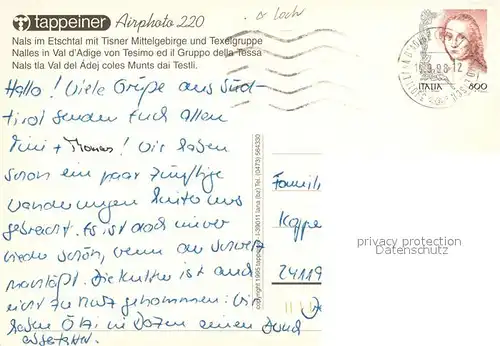 tappeiner Airphoto 220
Nals im Etschtal mit Tisner Mittelgebirge und Texelgruppe
Nalles in Val d'Adige von Tesimo ed il Gruppo della Tessa
Nals tla Val del Ádej coles Munts dai Testli.
ITALIA 800
Hallo! Viele Grüße aus Süd-
tirol senden Euch allen
+ Thomas! Wir haben
schon ein paar zünftige
Wanderungen hinter uns
gebracht. Es ist doch immer
wieder schön, wenn der Schweiß
Die Kultur ist auch
nicht zu kurz gekommen: Wir
haben Ötzi in Bozen einen
copyright 1995 tappeiner I-39011 lana (bz) Tel. (0473) 564330
Famili
Kappe
24119
privacy protection
Datenschutz